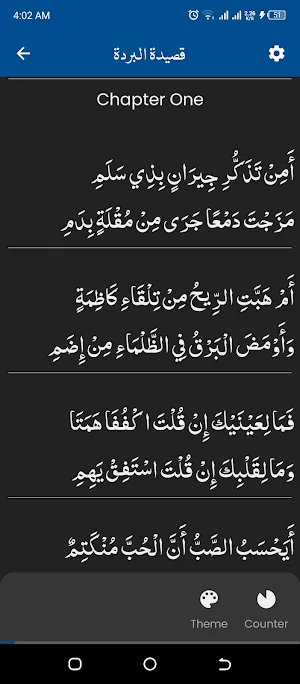 4:02 AM
2.26 K/s
51
قصيدة البردة
Chapter One
أَمِنْ تَذَكُّرِ جِيرَانٍ بِذِي سَلَمِ
مَزَجْتَ دَمْعًا جَرَى مِنْ مُقْلَةٍ بِدَمِ
أَمْ هَبَّتِ الرِّيحُ مِنْ تِلْقَاءِ كَاظِمَةٍ
وَأَوْمَضَ الْبَرْقُ فِي الظَّلْمَاءِ مِنْ إِضَمِ
فَمَا لِعَيْنَيْكَ إِنْ قُلْتَ اكْفُفَا هَمَتَا
وَمَا لِقَلْبِكَ إِنْ قُلْتَ اسْتَفِقْ يَهِمِ
أَيَحْسَبُ الصَّبُّ أَنَّ الْحُبَّ مُنْكَتِمٌ
Theme
Counter